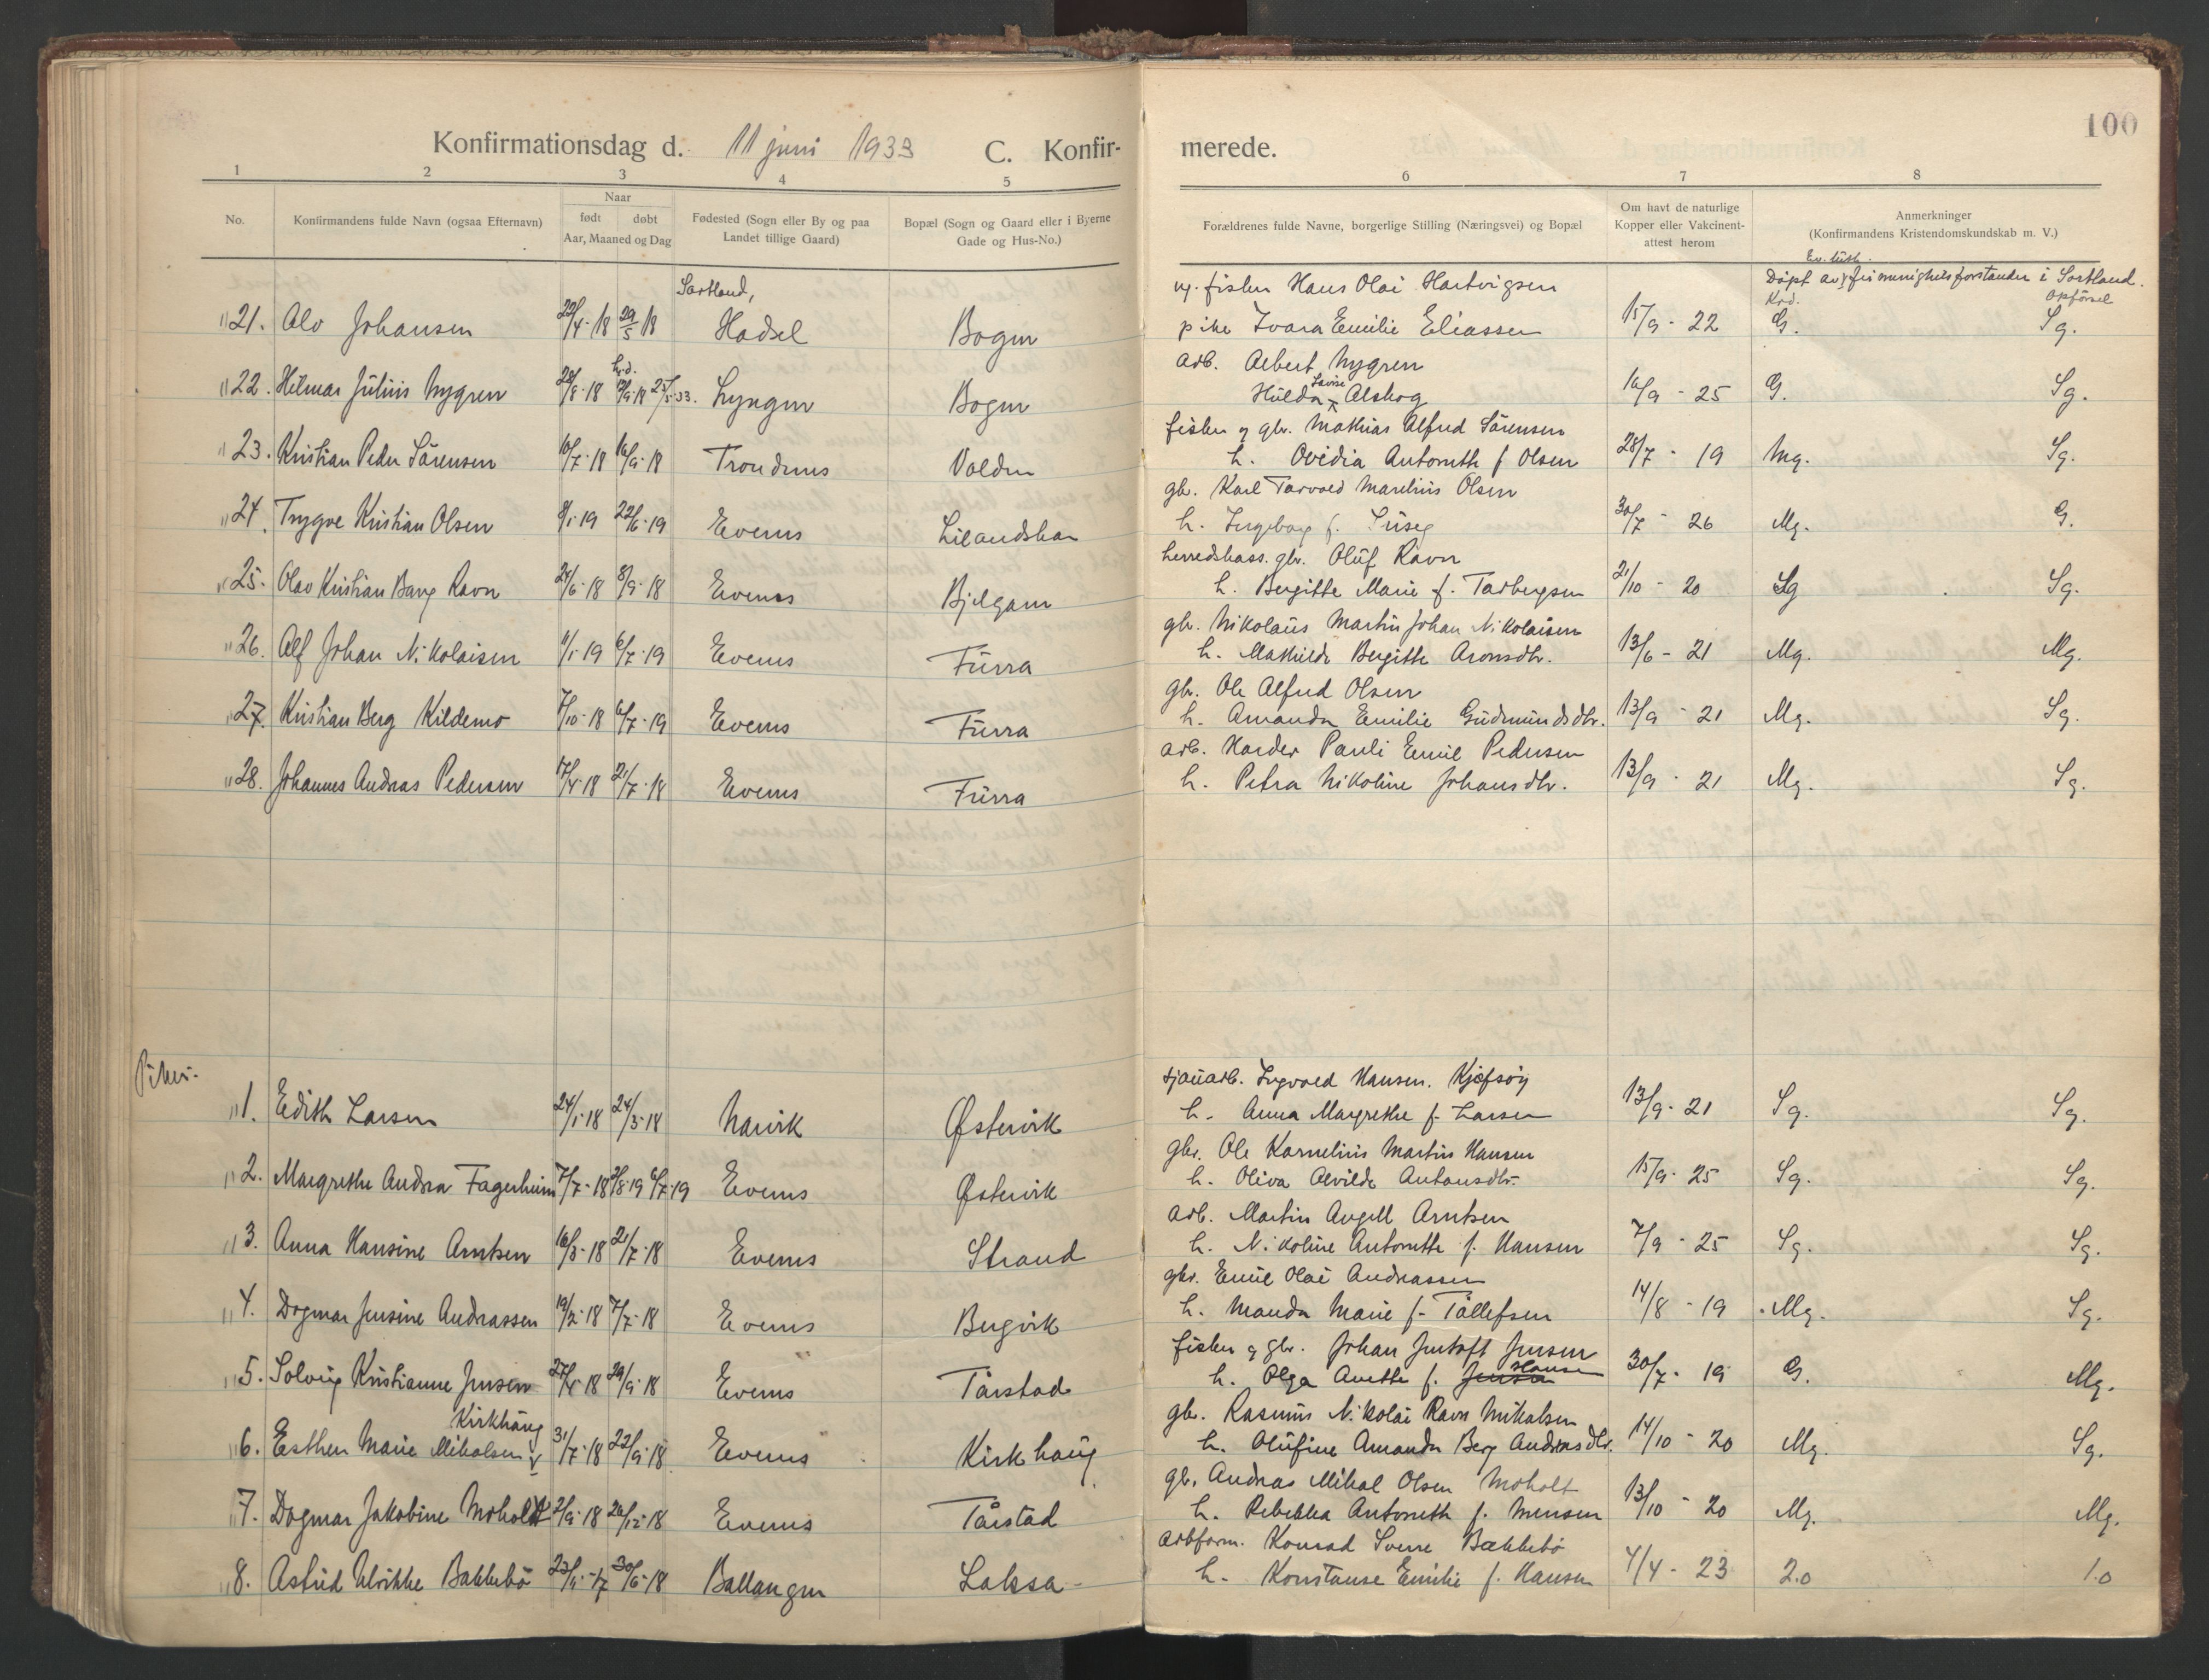 100
Konfirmationsdag d. 11 juni 1933 C. Konfir-
merede.
1 2 3 4 5 6 7 8
No.
Konfirmandens fulde Navn (ogsaa Efternavn)
Naar
født døbt
Aar, Maaned og Dag
Fødested (Sogn eller By og paa
Landet tillige Gaard)
Bopæl (Sogn og Gaard eller i Byerne
Gade og Hus-No.)
Forældrenes fulde Navne, borgerlige Stilling (Næringsvei) og Bopæl
Om havt de naturlige
Kopper eller Vakcinent-
attest herom
Anmerkninger
(Konfirmandens Kristendomskundskab m. V.)
Ev. luth.
Døpt av frimenighetsforstander i Sortland.
Krd. Opførsel
Sortland,
ug. fisker Hans Olai Hartvigsen
21. Alv Johansen 22/4-18 29/5 18 Hadsel Bogen
pike Ivara Emilie Eliassen 15/9 - 22 G. Sg.
arb. Albert Nygren
h.d.
22. Hilmar Julius Nygren 28/8-18 25/5-33. Lyngen Bogen
Hulda Lovise Alskog 16/9 - 25 G. Sg.
fisker og gbr. Mathias Alfred Sörensen
23. Kristian Peder Sörensen 10/7-18 16/9-18 Trondenes Volden
h. Ovidia Antonette f Olsen 28/7 - 19 Mg. Sg.
gbr. Karl Torvald Marelius Olsen
24. Trygve Kristian Olsen 8/1-19 22/6-19 Evenes Lilandskar
h. Ingeborg f. 30/7 - 26 Mg. G.
herredskass. gbr. Oluf Ravn
25. Olav Kristian Bang Ravn 24/6-18 8/9-18 Evenes Bjelgam
h. Bergitte Marie f. Torbergsen 21/10 - 20 Sg Sg.
gbr. Nikolaus Martin Johan Nikolaisen
26. Alf Johan Nikolaisen 11/1-19 6/7-19 Evenes Furra
h. Mathilde Bergitte Aronsdtr. 13/6 - 21 Mg. Mg.
gbr. Ole Alfred Olsen
27. Kristian Berg Kildemo 7/10-18 6/7-19 Evenes Furra
h. Amanda Emilie Gudmundsdtr. 13/9 - 21 Mg. Sg.
arb. Harder Pauli Emil Pedersen
28. Johannes Andreas Pedersen 17/4-18 21/7-18 Evenes Furra
h. Petra Nikoline Johansdtr. 13/9 - 21 Mg. Sg.
Piker.
sjauarb. Ingvald Hansen. Kjefsøy
1. Edith Larsen 24/1-18 24/3-18 Narvik Østervik
h. Anna Margrethe f. Larsen 13/9 - 21 Sg. Sg.
gbr. Ole Kornelius Martin Hansen
2. Margrethe Andrea Fagerheim 7/7-18 6/7-19 Evenes Østervik
h. Oliva Alvilde Antonsdtr. 15/9 - 25 Sg. Sg.
arb. Martin Angell Arntsen
3. Anna Hansine Arntsen 16/3-18 21/7-18 Evenes Strand
h. Nikoline Antonette f. Hansen 7/9 - 25 Sg. Sg.
gbr. Emil Olai Andreassen
4. Dagmar Jensine Andreassen 19/2-18 7/7-18 Evenes Bergvik
h. Manda Marie f. Tollefsen 14/8 - 19 Mg. Sg.
fisker og gbr. Johan Jentoft Jensen
5. Solveig Kristianne Jensen 27/4-18 29/9-18 Evenes Tårstad
h. Olga Anette f. Jensen Hansen 30/7 - 19 G. Mg.
gbr. Rasmus Nikolai Ravn Mikalsen
Kirkhaug
6. Esther Marie Mikalsen 31/7-18 22/9-18 Evenes Kirkhaug
h. Olufine Amanda Berg Andreasdtr. 14/10 - 20 Mg. Sg.
gbr. Andreas Mikal Olsen Moholt
7. Dagmar Jakobine Moholt 2/9-18 26/12-18 Evenes Tårstad
h. Rebekka Antonette f. Mensen 13/10 - 20 Mg. Mg.
arbform. Konrad Sverre Bakkebö
8. Astrid Ulrikke Bakkebö 23/9-17 30/6-18 Ballangen Laksa
h. Konstanse Emilie f. Hansen 4/4 - 23 2.0 1.0